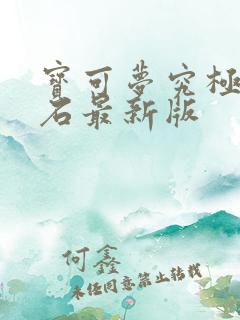 寳可夢究極
石最新版
何鑫
未经同意禁止转载